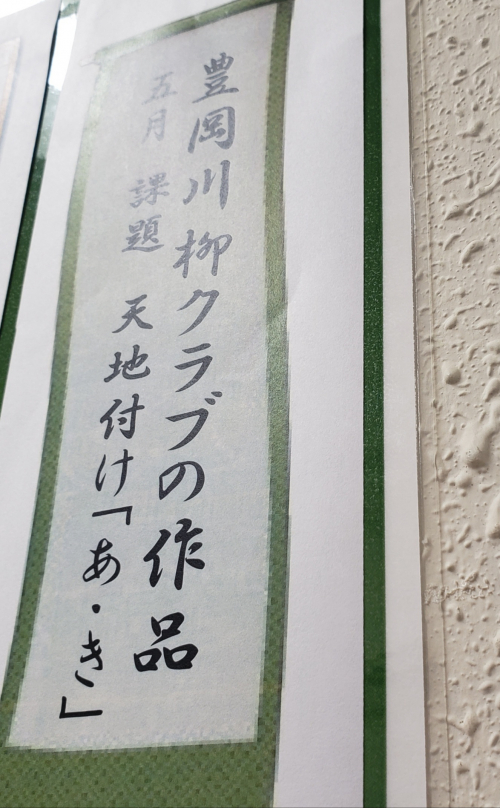 豊岡川柳クラブの作品
五月　課題　天地付け「あ・き」